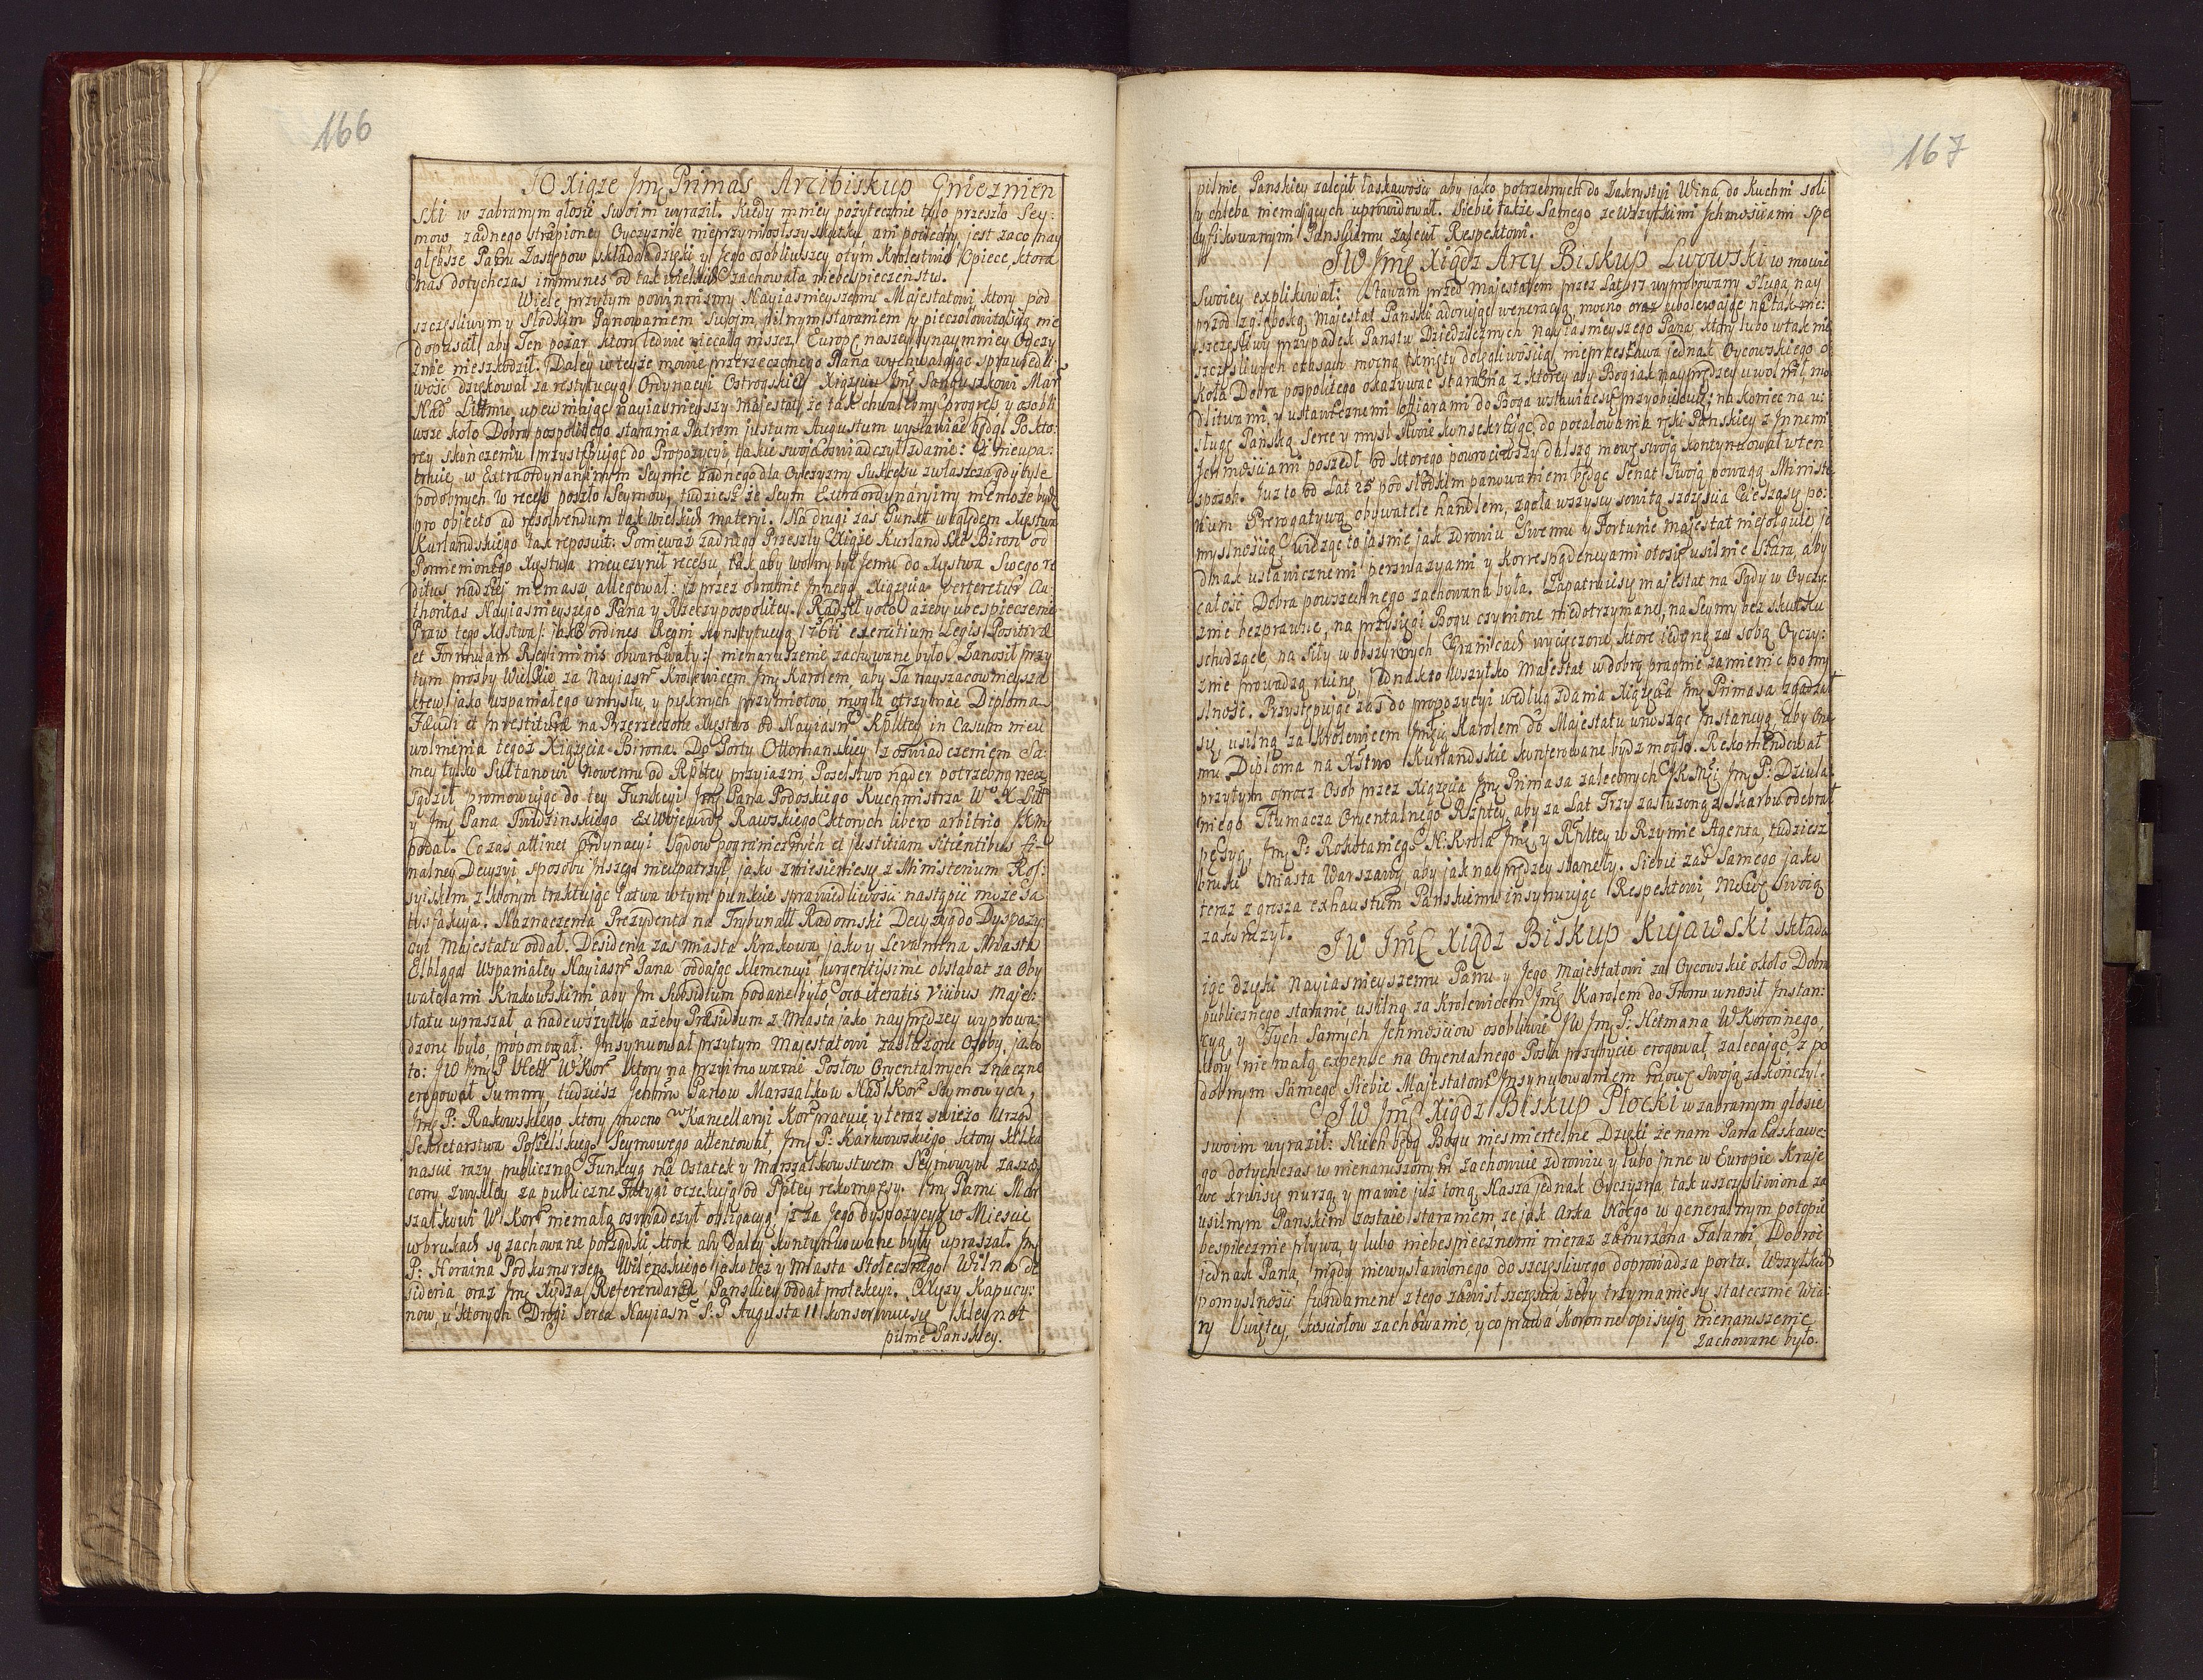 166
JO Xiąże Jmć Primas Arcibiskup Gnieznien
ski w zabranym głosie swoim wyraził. Kiedy mniey pożytecznie tylo przeszło Sey:
mow żadnego strapioney Oyczyznie nieprzyniosłszy skutku ani pociechy, jest zaco nay
głębsze Panu Zastępow składać dzięki y Jego osobliwszey otym Krolestwie Opiece, ktora
nas dotychczas immunes od tak wielkich zachowała niebespieczenstw.
Wiele przytym powinnismy Nayiasnieyszemu Majestatowi, ktory pod
szczęsliwym y słodkim Panowaniem swoim pilnym staraniem y pieczołowitością nie
dopuscił aby Ten pożar ktory ledwie niecałą niszczy Europę naszey naymniey Oyczy
znie nieszkodził. Daley w teyże mowie przerzeczonego Pana wychwalaiąc sprawiedli:
wość dziękował za restytucyą Ordynacyi Ostrogskiey Xiążęciu Jmć Sanguszkowi Mar
Nad Littmu, upewniając nayiasnieyszy Majestat, że tak chwalebny progres y osobli
wsze koło Dobra pospolitego starania Patrem justum Augustum wysławiać będą. Po kto:
rey skończeniu przystępując do Propozycyi takie swoje oswiadczył zdanie: iż nieupa:
truie w Extraordynaryinym Seymie żadnego dla Oyczyzny sukcesu zwłaszcza gdy tyle
podobnych w recess poszło Seymow, tudziesz że Seym Extraordynaryiny niemoże bydź
pro objecto ad resolvendum tak wielkich materyi. Na drugi zaś Punkt względem Xięstwa
Kurlandskiego tak reposuit: Ponieważ żadnego Przeszły Xiąże Kurlandski Biron od
Pomienionego Xięstwa nieuczynił recessu, tak aby wolny był Jemu do Xięstwa Swego re
ditus nadzieii niemasz allegował: iż przez obranie Jnnego Xiążęcia verteretur Au:
thoritas Nayiasnieyszego Pana y Rzeczypospolitey. Radził yoto ażeby ubespieczenie
Praw tego Xięstwa: jako ordines Regni Konstytucyą exercitium Legis Positivæ
et Formulam Regiminis obwarowały: nienaruszenie zachowane było. Zanosił przy
tym prosby Wielkie za Nayiasnr Krolewicem Jmć Karolem, aby Ta nayszacownieysza
krew, jako wspaniałego umysłu y pięknych przymiotow mogła otrzymać Diploma
Feudi et Investituræ na Przerzeczone Xięstwo od Nayiasnr Rpltey in Casum nieu
wolnienia tegoż Xiążęcia Birona. Do Porty Ottomanskiey z oswiadczeniem Sa:
mey tylko Sułtanowi Nowemu od Rpltey przyiazni, Poselstwo nader potrzebną rzecz
sądził promowując do tey Funkcyi Jmć Pana Podoskiego Kuchmistrza W. X. Litt
y Jmć Pana Ex Wojewodę Rawskiego ktorych libero arbitrio
podał. Co zas attinet Ordynacyi Sądow pogranicznych et justitiam sitientibus fi-
nalney Decyzyi sposobu Jnszego nieupatrzył, jako zniesienie się z Ministerium Ros:
syiskim z ktorym traktując łatwa w tym punkcie sprawiedliwości nastąpić może Sa
tysfakcya. Naznaczenia Prezydenta na Trybunał Radomski Decyzyą do Dyspozy
cyi Majestatu oddał. Desideria zas Miasta Krakowa, jako y Levamina Miasta
Elbląga Wspaniałey Nayiasnr Pana oddając klemencyi, urgentissime obstabat za Oby
watelami Krakowskimi aby Jm Subsidium podane było oco iteratis vicibus Maje:
statu upraszał a nadewszytko ażeby Præsidium z Miasta jako nayprędzey wyprowa:
dzone było, proponował. Jnsynuował przytym Majestatowi zasłużone Osoby, jako
to: JW Jmć P Hett. W. Kor. ktory na przyimowanie Posłow Oryentalnych znaczne
erogował Summy, tudziesz Jchmw Panow Marszałkow Nad Kor Seymowych,
Jmć P: Rakowskiego ktory mocno w Kancellaryi Kor pracuie y teraz swieżo Urząd
Sekretarstwa Poselskiego Seymowego attentował, Jmć P: Karwowskiego, ktory kilka
nascie razy publiczną Funkcyą na Ostatek y Marszałkowstwem Seymowym zaszczy
cony zwykłey za publiczne Fatygi oczekują od Rpltey rekompensy. Jmć Panu Mar
szałkowi W. Kor niemałą oswiadczył obligacyą, iż za Jego dyspozycyą w Miescie
w brukach są zachowane porządki, ktore aby daley kontynuowane były upraszał. Jmć
P: Horaina Podkomorzego Wilenskiego jako też y Miasta Stołecznego Wilna de
sideria oraz Jmć Xiędza Referendarza Panskiey oddał protekcyi. XXięży Kapucy:
now, u ktorych Drogi Serca Nayiasnr S: P Augusta II konserwuie się kleynot
pilnie Panskiey.
167
pilnie Panskiey zalecił łaskawości aby jako potrzebnych do Zakrystyi Wina, do Kuchni soli
y chleba niemających uprowidował. Siebie także Samego ze Wszytkimi Jchmościami spe
cyfikowanymi Panskiemu zalecił Respektowi.
JW Jmć Xiądz Arcy Biskup Lwowski w mowie
Swoiey explikował: Stawam przed Majestatem przez Lat 17 wyprobowany Sługa nay
przod zgłęboką Majestat Panski adorując weneracyą, mocno oraz ubolewając na tak nie:
szczęśliwy przypadek Panstw Dziedzicznych Nayiasnieyszego Pana, ktory lubo w tak nie
szczęśliwych czasach mocną tknięty dolegliwością, nieprzestawa jednak Oycowskiego o
koła Dobra pospolitego okazywać starania z ktorey aby Bog jak nayprędzey uwolnił, mo
dlitwami y ustawicznemi ofiarami do Boga wstawiać się przyobiecuie; na koniec na u:
sługę Panską Serce y mysl swoie konsekrując, do pocałowania ręki Panskiey z Jnnemi
Jchmościami poszedł, od ktorego powrociwszy dalszą mowę swoją kontynuował w ten
sposob. Juz to od Lat 25 pod słodkim panowaniem będąc Senat Swoją powagą Ministe
rium Prerogatywą, obywatele handlem, zgoła wszyscy sowitą szczęścia cieszą się po:
myslnością, widzę to jasnie jak zdrowiu Swemu y Fortunie Majestat niefolguie je
dnak ustawicznemi perswazyami y Korrespondencyami otosię usilnie stara, aby
całość Dobra powszechnego zachowana była. Zapatruiesię majestat na Sądy w Oyczy:
znie bezprawne, na przysięgi Bogu czynione niedotrzymane, na Seymy bez skutku
schodzące, na siły w obszyrnych Granicach wycięczone, ktore iedyną za sobą Oyczy:
znie prowadzą ruinę, Jednak to wszytko Majestat w dobrą pragnie zamienić pomy
slność. Przystępując zaś do propozycyi według zdania Xiążęcia Jmć Primasa zgadzał
się, usilną za Krolewicem Jmcią Karolem do Majestatu wnosząc Jnstancyą, aby One
mu Diploma na Xstwo Kurlandskie konferowane bydź mogło. Rekomendował
przytym oprocz Osob przez Xiążęcia Jmć Primasa zaleconych JKMci Jmć P: Dziula
niego Tłumacza Oryentalnego Rzptey, aby za Lat Trzy zasłużoną z Skarbu odebrał
pęsyą, Jmć P: Rokotaniego N: Krola Jmć y Rpltey w Rzymie Agenta, tudziesz
bruki Miasta Warszawy aby jak nayprędzey stanęły. Siebie zaś Samego jako
teraz z grosza exhaustum Panskiemu insynuując Respektowi, Mowę Swoią
zakończył.
JW Jmć Xiądz Biskup Kujawski składa
iąc dzięki Nayiasnieyszemu Panu y Jego Majestatowi za Oycowskie około Dobra
publicznego staranie, usilną za Krolewicem Jmć Karolem do Tronu wnosił Jnstan:
cyą y Tych Samych Jchmościow osobliwie JW Jmć P: Hetmana W Koronnego,
ktory niemałą expensę na Oryentalnego Posła przybycie erogował, zalecając z po
dobnym Samego Siebie Majestatowi Jnsynuowaniem mowę Swoją zakończył.
JW Jmć Xiądz Biskup Płocki w zabranym głosie
swoim wyraził: Niech będą Bogu niesmiertelne Dzięki że nam Pana Łaskawe:
go dotychczas w nienaruszonym zachowuie zdrowiu y lubo jnne w Europie Kraje
we krwi się nurzą, y prawie już toną, Nasza jednak Oyczyzna tak uszczęśliwiona za
usilnym Panskim zostaie staraniem, ze jak Arka Noego w generalnym potopie
bespiecznie pływa, y lubo niebespiecznemi nieraz zanurzona Falami, Dobroć
jednak Pana, nigdy niewysławionego do szczęsliwego doprowadza portu. Wszytkich
pomyslności fundament z tego zawisł szczęścia żeby trzymanie się statecznie Wia:
ry Świętey, kosciołow zachowanie, y co prawa Koronne opisują nienaruszenie
zachowane było.